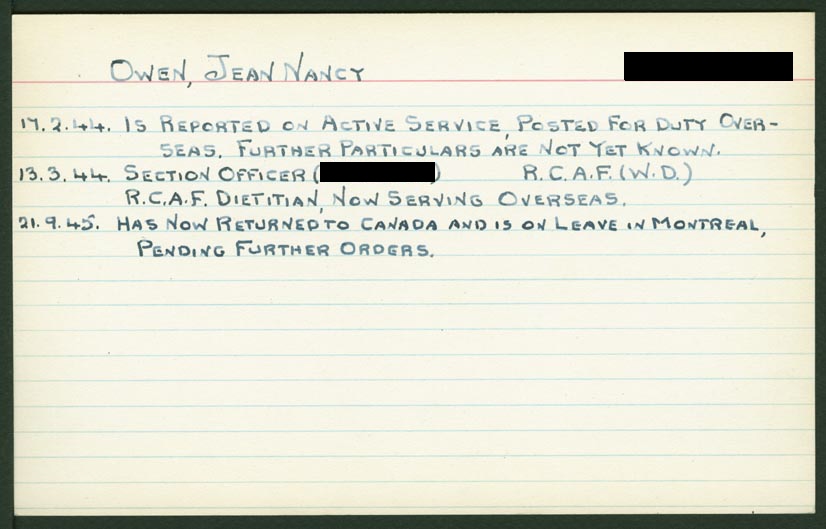 OWEN, JEAN NANCY
17.2.44. IS REPORTED ON ACTIVE SERVICE, POSTED FOR DUTY OVER-
SEAS. FURTHER PARTICULARS ARE NOT YET KNOWN.
13.3.44. SECTION OFFICER ( ) R.C.A.F. (W.D.)
R.C.A.F. DIETITIAN, NOW SERVING OVERSEAS.
21.9.45. HAS NOW RETURNED TO CANADA AND IS ON LEAVE IN MONTREAL,
PENDING FURTHER ORDERS.